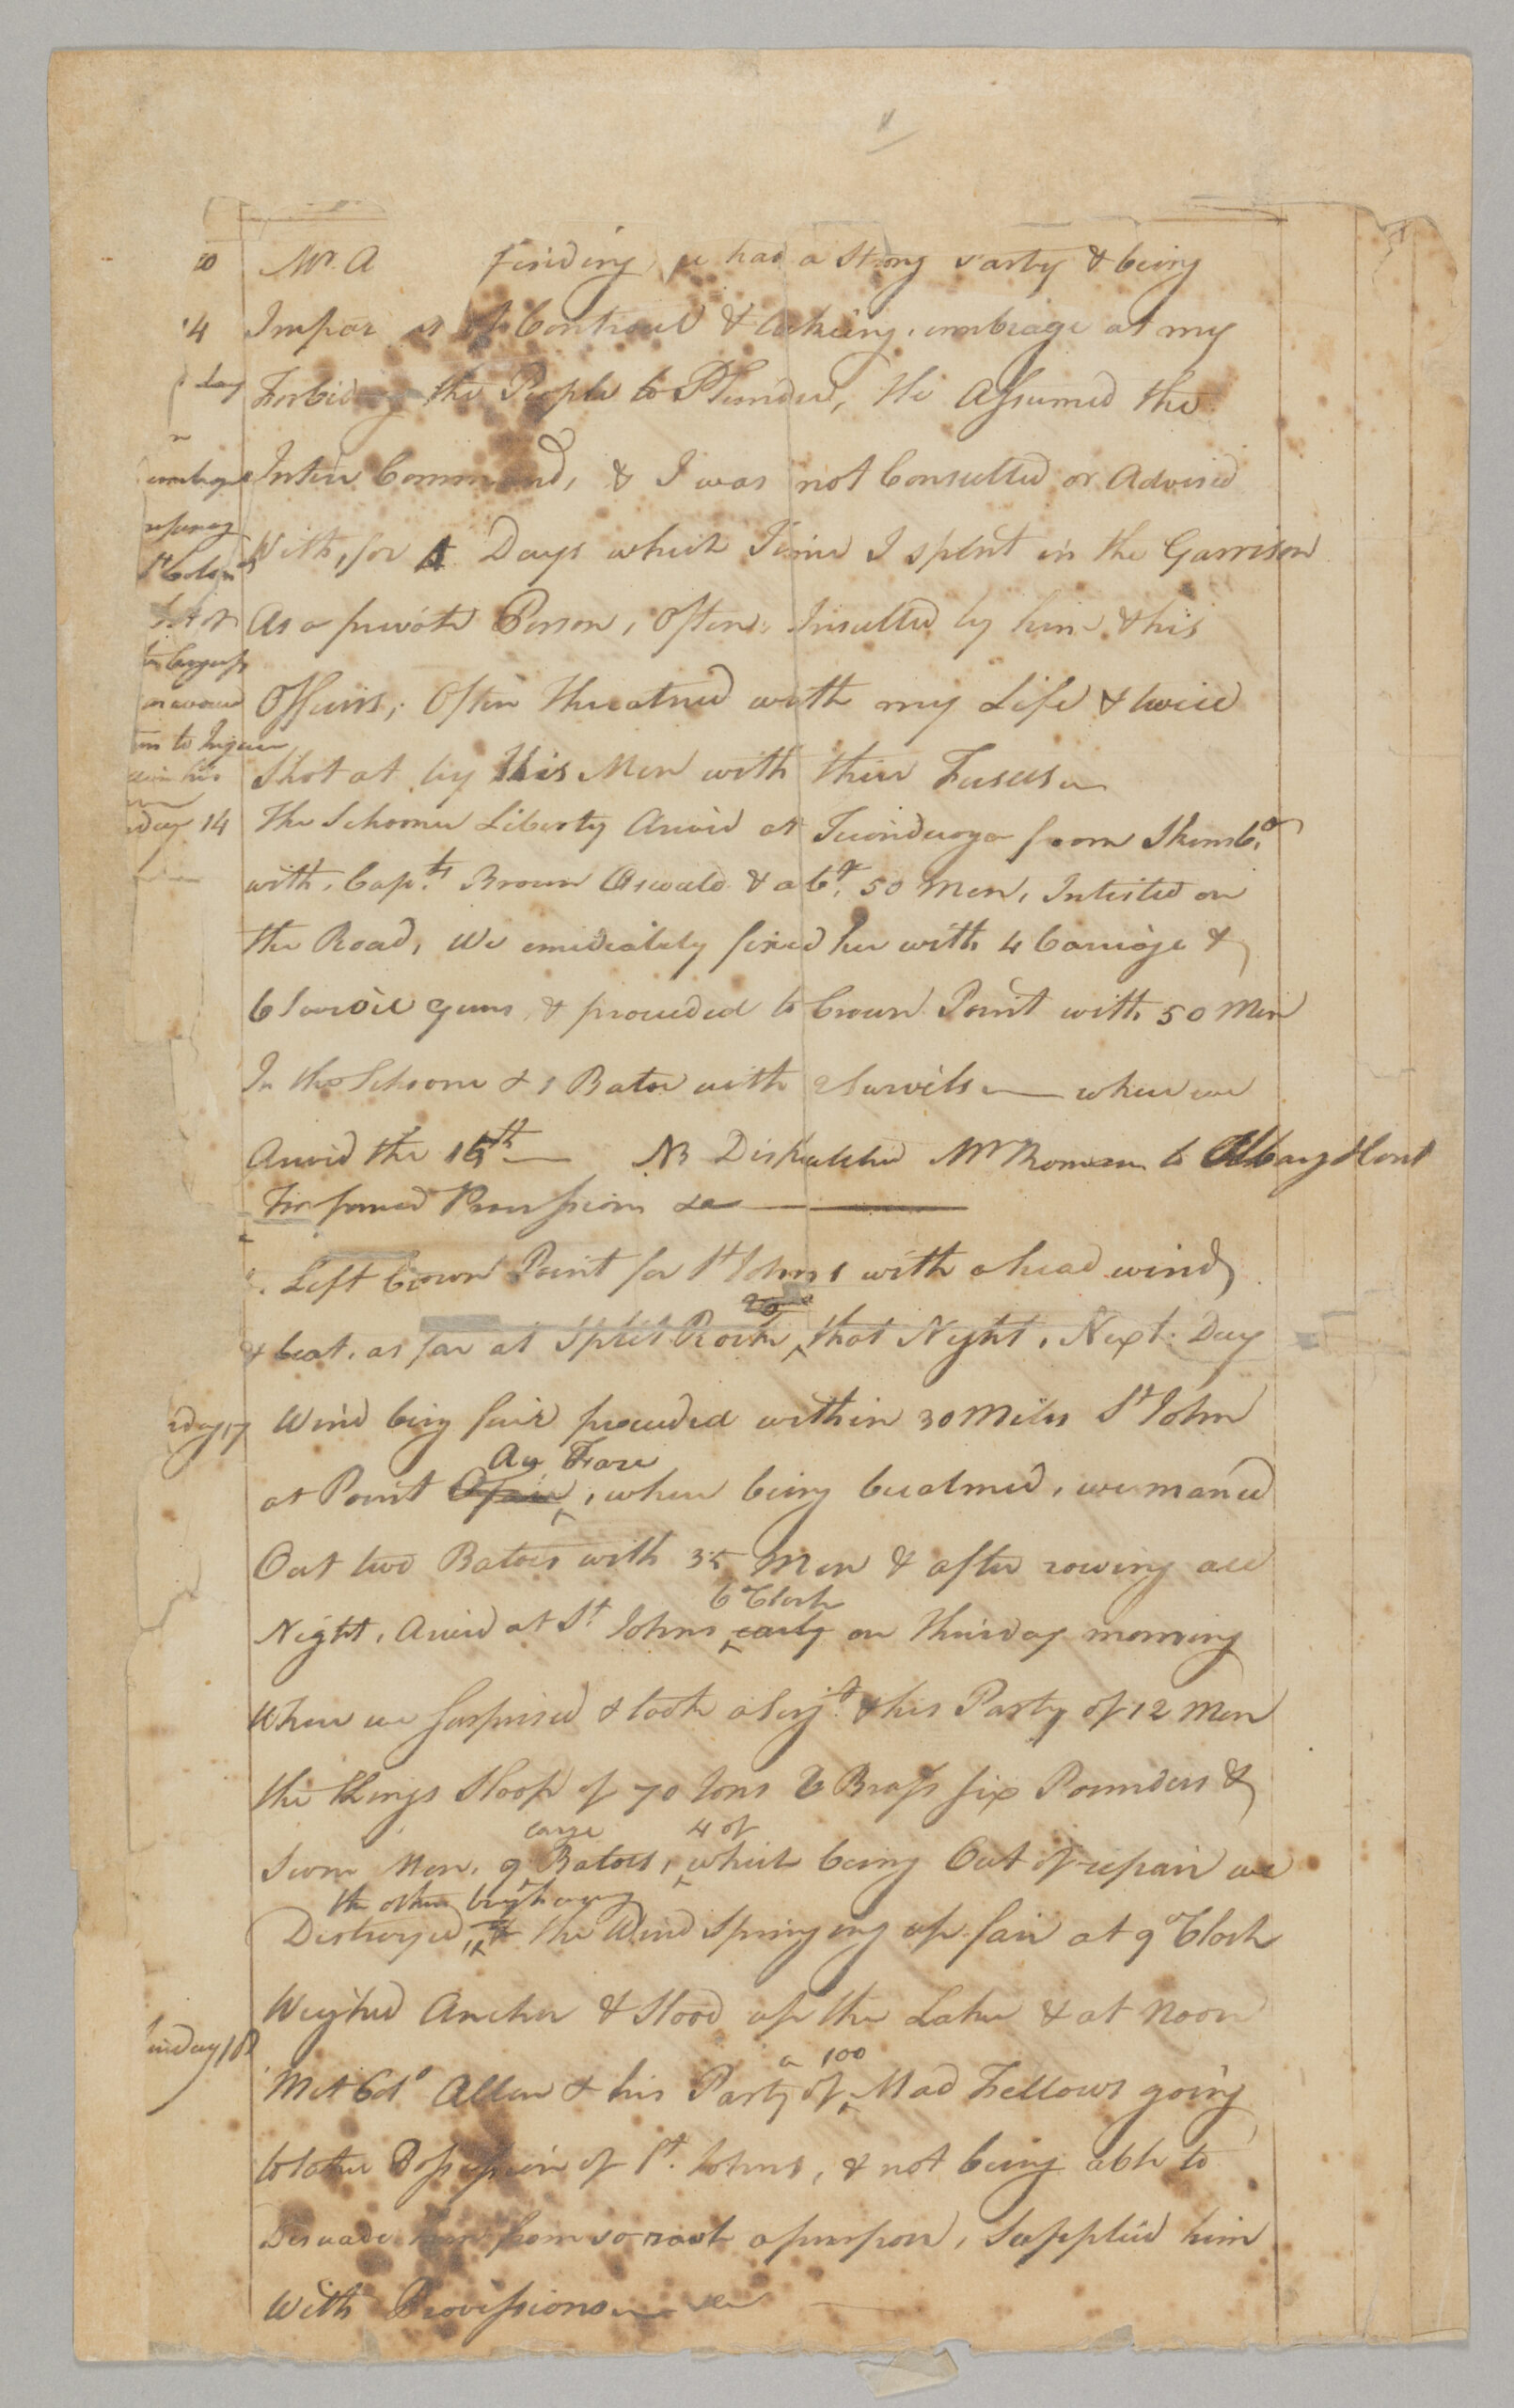 10
Mr. A finding he had a Strong Party & being
14
Impatient of Controul & takeing umbrage at my
day
Forbiding the People to Plunder, He Assumed the
Intire Command, & I was not Consulted or Advised
With, for 4 Days which Time I spent in the Garrison
As a private Person, Often Insulted by him & his
Officers, Often threatned with my Life & twice
Shot at by His Men with their Fusees
day 14
The Schooner Liberty Arivd at Ticonderoga from Skensbo.
with Capts. Brown Oswald & abt. 50 Men, Inlisted on
the Road, We emidiately fixed her with 4 Carriage &
6 Swivil guns & proceeded to Crown Point with 50 Men
In the Schoone & 1 Batoe with Swivils — where we
Arivd the 15th — NB Dispatched Mr Romans to Albany Hont
For powd Provission &c
Left Crown Point for St Johns with a head wind
& beat as far as Split Rock that Night, Next Day
day 17
Wind being fair proceeded within 30 Miles St John
Au Fare
at Point , when being becalmed, we maned
Out two Batoes with 35 Men & after rowing all
6 oClock
Night, Arivd at St. Johns early on Thirsday morning
When we Surprised & took a Serjt. & his Party of 12 Men
the Kings Sloop of 70 tons 2 Brass six Pounders &
large 4 of
Seven Men, 9 Batoes, which being Out of repair we
the others brought away
Destroyed, the Wind Springing up fair at 9 oClock
Weighed Ancher & Stood up the Lake & at Noon
18
a 100
Met Colo Allen & his Party of Mad Fellows going
to take Possession of St. Johns, & not being able to
Disuade him from so rash a purpose, Supplied him
With Provissions &c